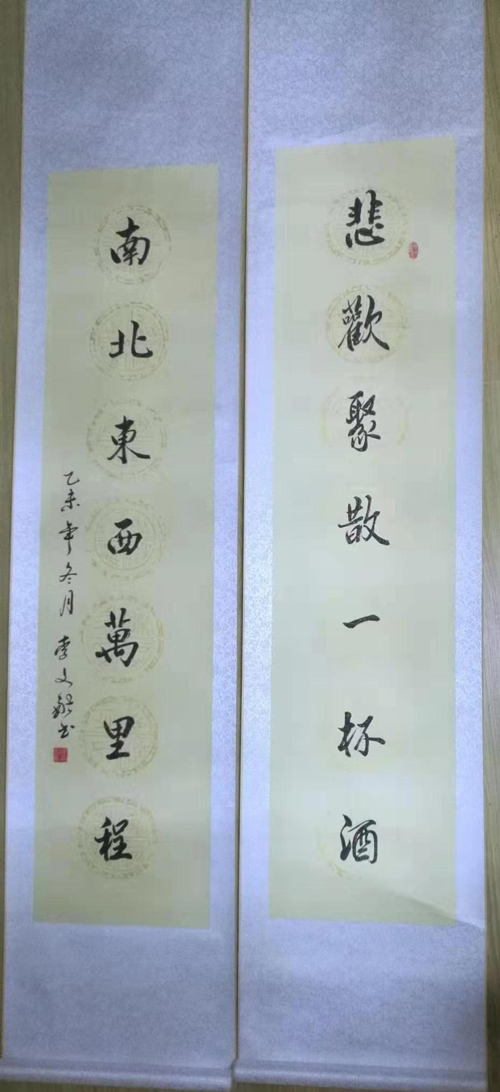 悲歡聚散一杯酒
南北東西萬里程
乙未年冬月 李文 书